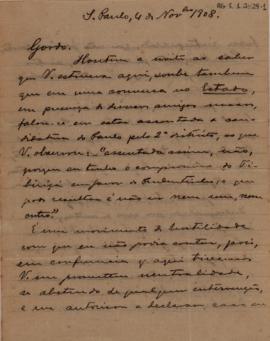 S. Paulo, 4 de Novbro 1908.
Gordo.
Hontem á noite ao saber
que V. estivera aqui, soube tambem
que em uma conversa no Estado,
em presença de diversos amigos nossos,
falou-se em estar assentada a can
didatura do Paulo pelo 2º districto, ao que
V. observou: "assentada assim, não,
porque eu tenho o compromisso do Ti
biriçá em favor do Prudentinho, e o que
pode resultar é não ir nem um, nem
outro."
É um movimento de hostilidade
com que eu não podia contar, pois,
em confiança q aqui tivemos
V. me prometteu neutralidade,
se abstendo de qualquer intervenção,
e me autorisou a declarar, caso eu